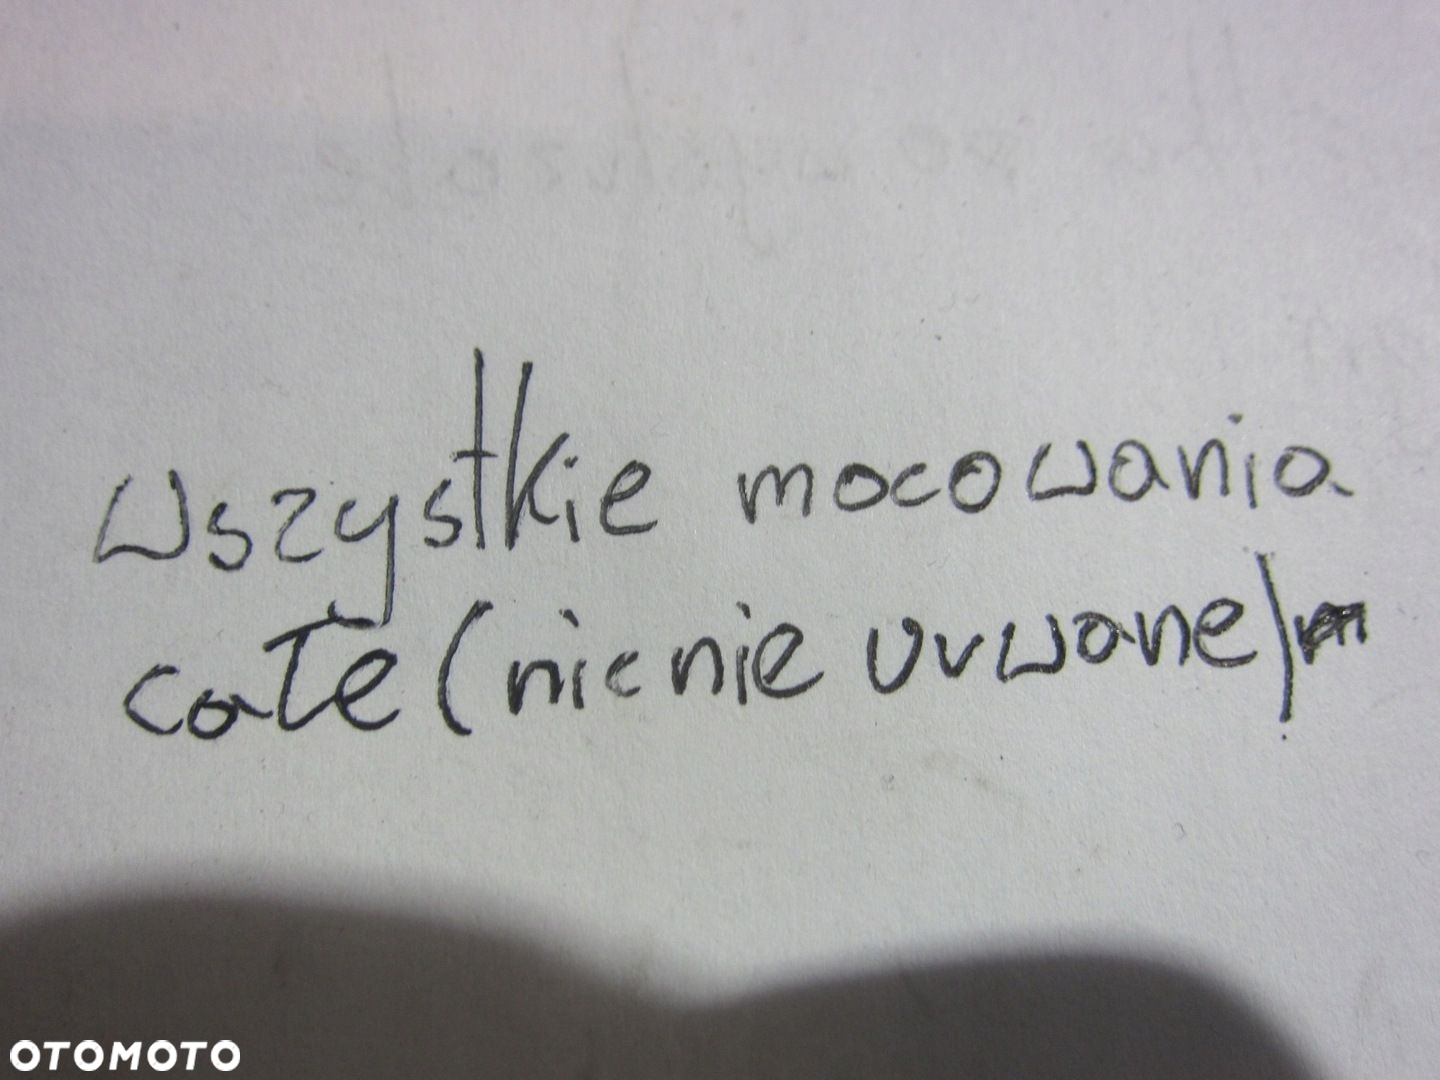 wszystkie mocowania
całe (nic nie urwane)
OTOMOTO